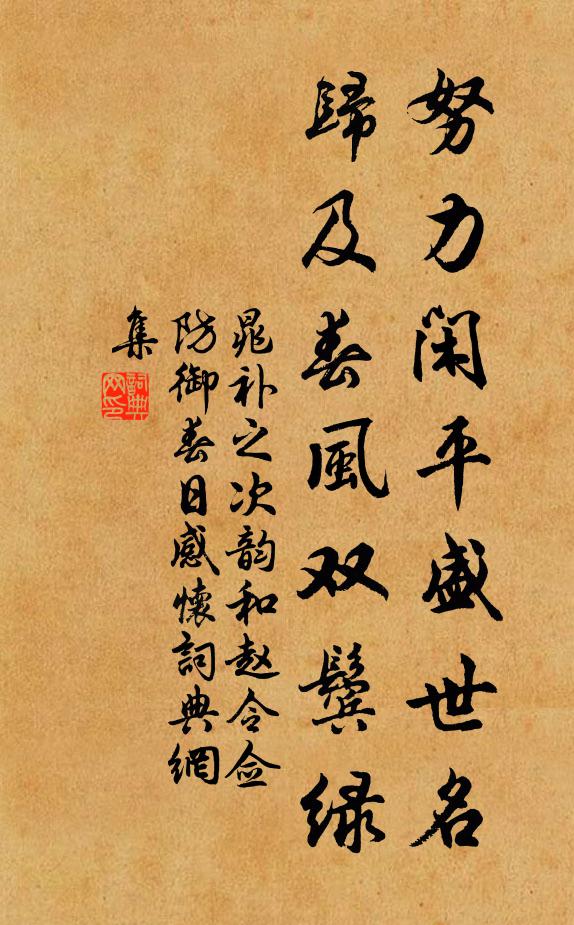 努力闲平盛世名
歸及春風双鬓緑
晁补之次韵和赵令佥
防御春日感懷詞典網
集
詞典網印